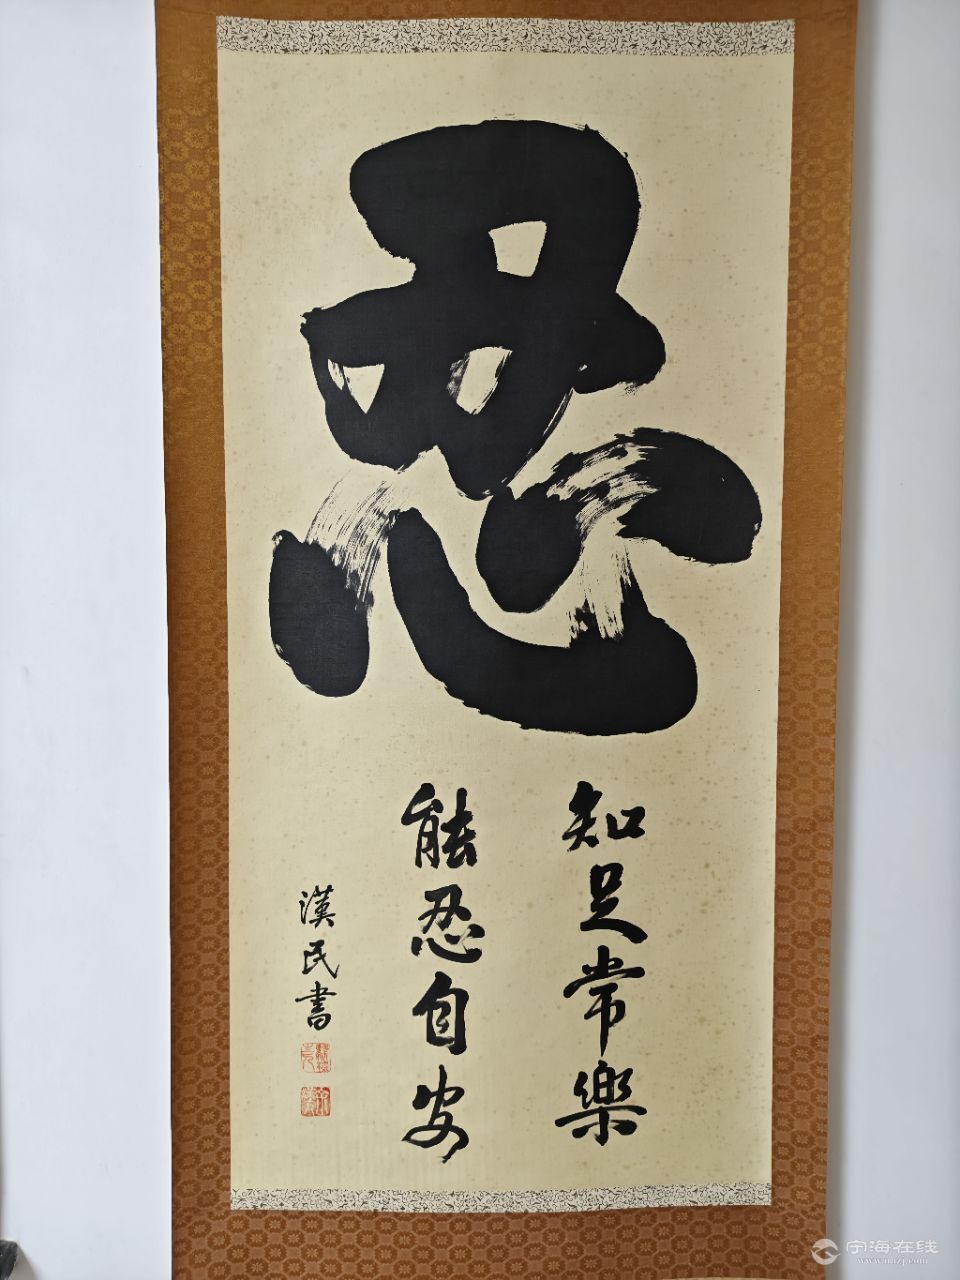 忍
知足常樂
能忍自安
漢民書
宁海在线
www.nhzj.com